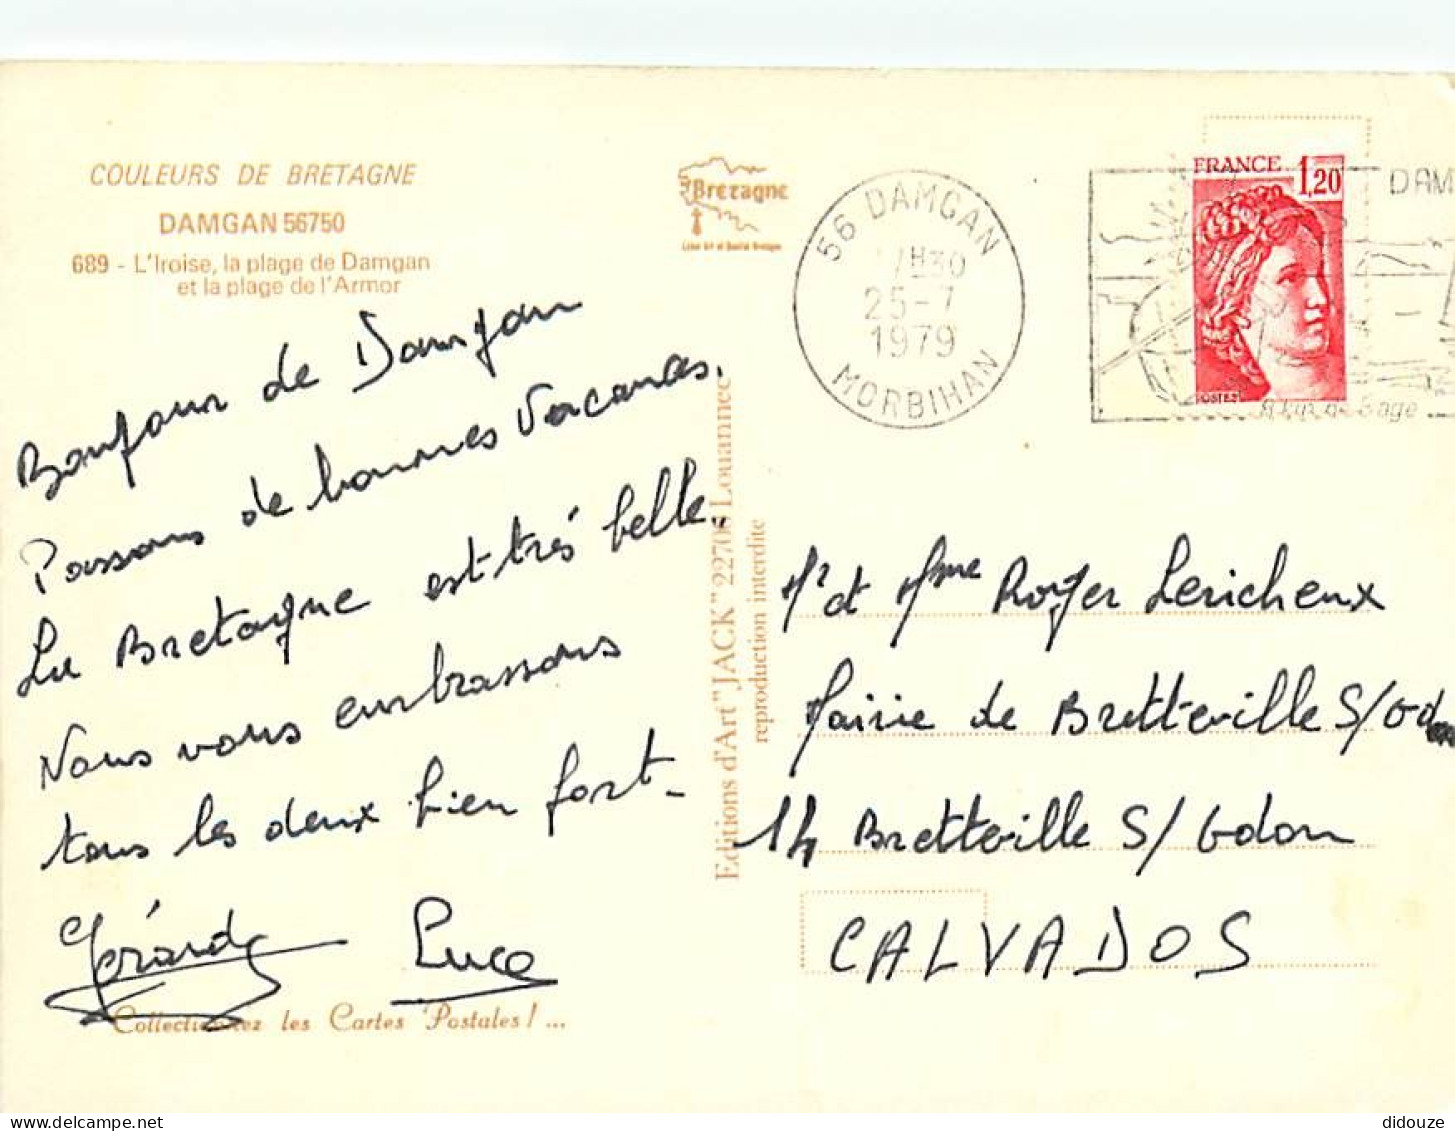 COULEURS DE BRETAGNE
DAMGAN 56750
689 - L'Iroise, la plage de Damgan
et la plage de l'Armor
Bretagne
Label Art et Qualité Bretagne
56 DAMGAN
7H30
25-7
1979
MORBIHAN
FRANCE 1,20
POSTES
DAM
Bonjour de Damgan
Passons de bonnes Vacances.
La Bretagne est très belle.
Nous vous embrassons
tous les deux bien fort -
Gérard Luce
Collectionnez les Cartes Postales ! ...
Editions d'Art "JACK" 22700 Louannec
reproduction interdite
Mr et Mme Roger Lericheux
Mairie de Bretteville S/Odon
14 Bretteville S/Odon
CALVADOS
didouze